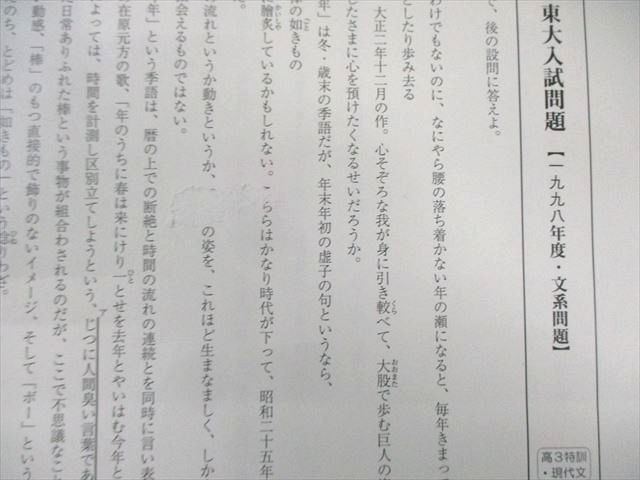 東大入試問題【一九九八年度・文系問題】
高3特訓
・現代文
で、後の設問に答えよ。
わけでもないのに、なにやら腰の落ち着かない年の瀬になると、毎年きまって
としたり歩み去る
大正二年十二月の作。心そぞろな我が身に引き較べて、大股で歩む巨人の
したさまに心を預けたくなるせいだろうか。
年」は冬・歳末の季語だが、年末年初の虚子の句というなら、
棒の如きもの
膾炙しているかもしれない。こちらはかなり時代が下って、昭和二十五年
流れというか動きというか、
の姿を、これほど生まなましく、しか
会えるものではない。
年」という季語は、暦の上での断絶と時間の流れの連続とを同時に言い表
在原元方の歌、「年のうちに春は来にけり一とせを去年とやいはむ今年と
よっては、時間を計測し区別立てしようという、じつに人間臭い言葉であ
日常ありふれた棒という事物が組合わされるのだが、ここで不思議なこと
動感、「棒」のもつ直接的で飾りのないイメージ、そして「ボー」という
のち、とどめは「如きもの」という
わざ。